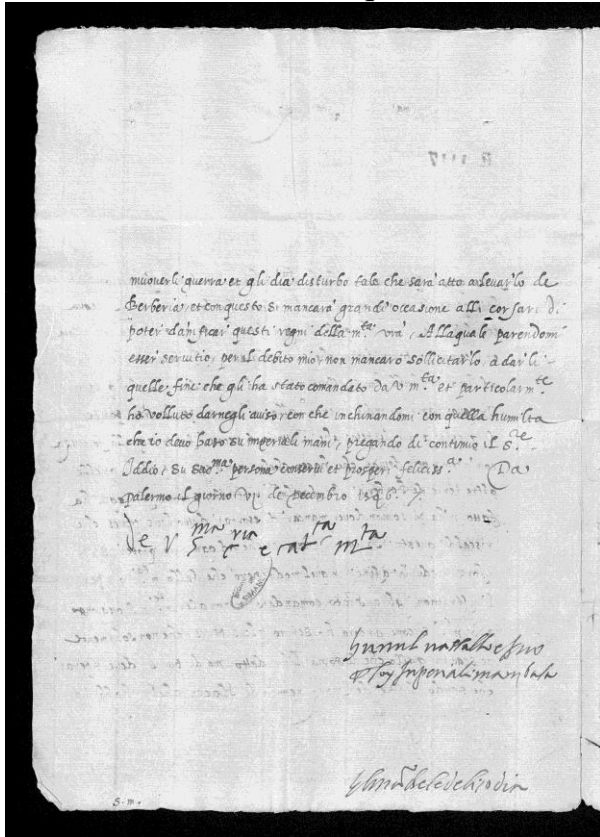 muoverli guerra et gli dia disturbo tale che sara atto a levarlo de
Berberia, et con questo si mancara grandi occasione alli corsari di
poter damficar questi regni della m.ta vra, Allaquale parendomi
esser servitio, per il debito mio, non mancaro sollicitarlo, à darli
quelle fine che gli ha stato comandato da v m.ta et particolarm.te
ho volluto darnegli aviso, con che inchinandomi con quella humilta
che io devo baso su imperiali mani, pregando di continuo il S.re
Iddio, su sac.ma persona conservi et prosperi feliciss.a Da
Palermo il giorno vj de Decembro
De V ma e cat.ca m.ta
humil vassallo e
imperiali mani basa
S. m.